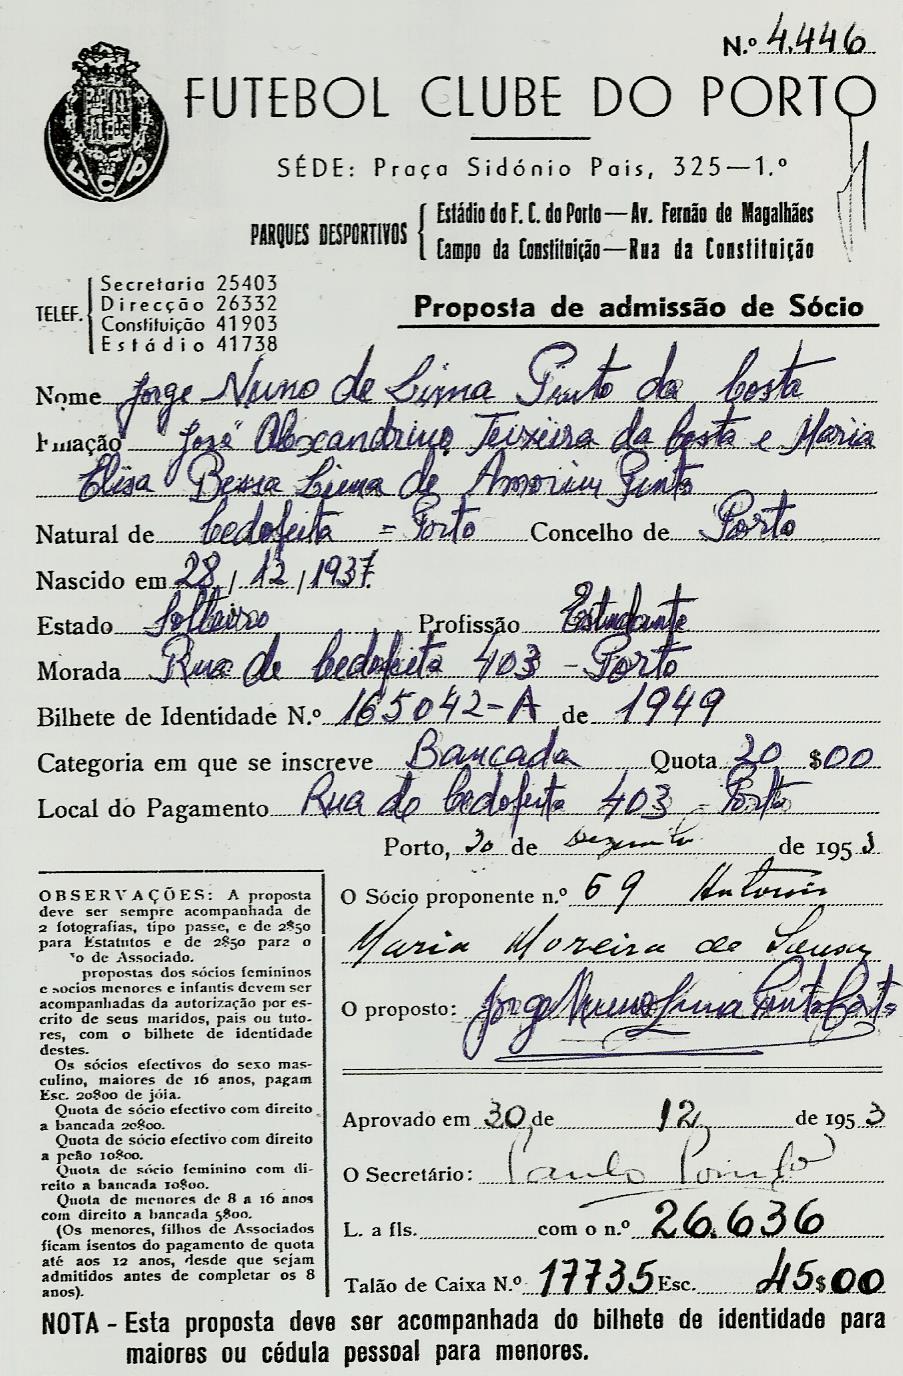 N.º 4.446
FUTEBOL CLUBE DO PORTO
FCP
SÉDE: Praça Sidónio Pais, 325—1.º
PARQUES DESPORTIVOS
Estádio do F. C. do Porto — Av. Fernão de Magalhães
Campo da Constituição — Rua da Constituição
TELEF.
Secretaria 25403
Direcção 26332
Constituição 41903
Estádio 41738
Proposta de admissão de Sócio
Nome Jorge Nuno de Lima Pinto da Costa
Filiação José Alexandrino Teixeira da Costa e Maria
Elisa Bessa Lima de Amorim Pinto
Natural de Cedofeita = Porto Concelho de Porto
Nascido em 28 / 12 / 1937.
Estado Solteiro Profissão Estudante
Morada Rua de Cedofeita 403 - Porto
Bilhete de Identidade N.º 165042-A de 1949
Categoria em que se inscreve Bancada Quota 20 $00
Local do Pagamento Rua de Cedofeita 403 - Porto
Porto, 30 de Dezembro de 1953
OBSERVAÇÕES: A proposta
deve ser sempre acompanhada de
2 fotografias, tipo passe, e de 2$50
para Estatutos e de 2$50 para o
o de Associado.
propostas dos sócios femininos
e sócios menores e infantis devem ser
acompanhadas da autorização por es-
crito de seus maridos, pais ou tuto-
res, com o bilhete de identidade
destes.
Os sócios efectivos do sexo mas-
culino, maiores de 16 anos, pagam
Esc. 20$00 de jóia.
Quota de sócio efectivo com direito
a bancada 20$00.
Quota de sócio efectivo com direito
a peão 10$00.
Quota de sócio feminino com di-
reito a bancada 10$00.
Quota de menores de 8 a 16 anos
com direito a bancada 5$00.
(Os menores, filhos de Associados
ficam isentos do pagamento de quota
até aos 12 anos, desde que sejam
admitidos antes de completar os 8
anos).
O Sócio proponente n.º 69 Antonio
Maria Moreira de Sousa
O proposto: Jorge Nuno Lima Pinto Costa
Aprovado em 30 de 12 de 1953
O Secretário: Paulo Pombo
L. a fls. com o n.º 26.636
Talão de Caixa N.º 17735 Esc. 45$00
NOTA - Esta proposta deve ser acompanhada do bilhete de identidade para
maiores ou cédula pessoal para menores.